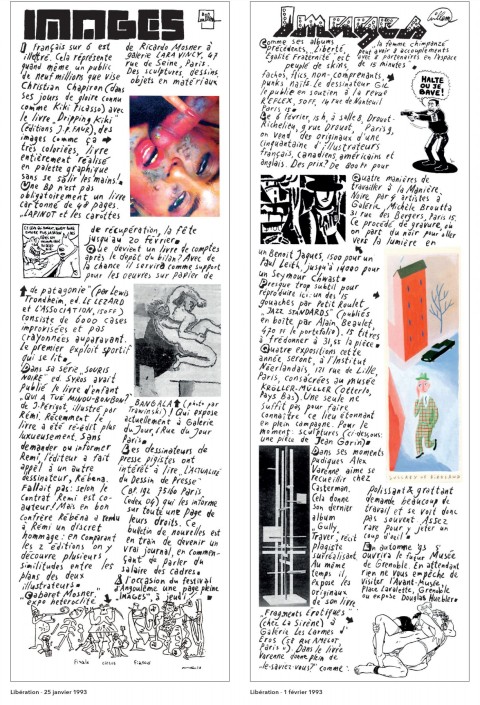 IMAGES
Français sur 6 est
illettré. Cela représente
quand même un public
de neuf millions que vise
Christian Chapiron (dans
ses jours de gloire connu
comme Kiki Picasso) avec
le livre "Dripping Kiki"
(éditions J.P. FAUR), des
images comme ça
très colorées, livre
entièrement réalisé
en palette graphique
sans se salir les mains!
Une BD n'est pas
obligatoirement un livre
cartonné de 48 pages.
"LAPINOT et les carottes
de Ricardo Mosner à
galerie LARA VINCY, 47
rue de Seine, Paris.
Des sculptures, dessins,
objets en matériaux
de récupération, la fête
jusqu'au 20 février.
Que devient un livre de comptes
après le dépôt du bilan? Avec de
la chance il servira comme support
pour les oeuvres sur papier de
de patagonie" (par Lewis
Trondheim, ed. LE LEZARD
et L'ASSOCIATION,
consiste de 6000 cases
improvisées et pas
crayonnées auparavant.
Le premier exploit sportif
qui se lit.
Dans sa série "SOURIS
NOIRE" ed SYROS avait
publié le livre d'enfant
"QUI A TUÉ MINOU-BONBON?"
de J. Périgot, illustré par
Rémi. Récemment le
livre a été réédité plus
luxueusement. Sans
demander ou informer
Remi, l'éditeur a fait
appel à un autre
dessinateur, Rebena.
Fallait pas: selon le
contrat Remi est co-
auteur! Mais en bon
confrère Rebena a rendu
à Rémi un discret
hommage: en comparant
les 2 éditions on y
découvre plusieurs
similitudes entre les
plans des deux
illustrateurs.
"Cabaret Mosner"
expo hétéroclite
BANGALA (photo par
Trawinski)! Qui expose
actuellement à Galerie
du Jour, rue du Jour
Paris.
Les dessinateurs de
presse pigistes ont
intérêt à lire "L'ACTUALITÉ
du Dessin de Presse"
75160 Paris
Cedex 04) qui les informe
sur toute une page de
leurs droits. Ce
bulletin de nouvelles est
en train de devenir un
vrai journal, en commen-
çant de parler du
salaire des cadres.
À l'occasion du festival
d'Angoulême une page pleine
"IMAGES", à jeudi!
Finale circus Fiasco
Libération · 25 janvier 1993
IMAGES
Comme ses albums
précédents, "Liberté,
Égalité Fraternité", est
peuplé de skins,
fachos, flics, non-comprenants,
punks naïfs. Le dessinateur GIL
le publie en soutien à la revue
REFLEX, 50FF, 14 rue de Nanteuil
Paris 15
Le 6 février, 15h, à salle 8, Drouot-
Richelieu, 9 rue Drouot, Paris 9,
on vend des originaux d'une
cinquantaine d'illustrateurs
français, canadiens, américains et
anglais. Des prix? De 800 F pour
la femme chimpanzé
pour avoir 2 accouplements
avec 8 partenaires en l'espace
de 15 minutes.
HALTE
OU JE
BAVE!
Quatre manières de
travailler à la Manière
Noire par 4 artistes à
Galerie, Michèle Broutta
31 rue des Bergers, Paris 15.
Ce procédé de gravure, où
on part du noir pour aller
vers la lumière en
un Benoit Jaques, 1500 pour un
Paul Leith, jusqu'à 14000 pour
un Seymour Chwast.
Presque trop subtil pour
reproduire ici: un des 15
gouaches par Petit Roulet
"JAZZ STANDARDS" (publiés
en boîte par Alain Beaulet,
470 FF le portefolio), 17 titres
à fredonner à 31,5 la pièce.
Quatre expositions cette
année seront, à l'Institut
Néerlandais, 121 rue de Lille,
Paris, consacrées au musée
KRÖLLER-MÜLLER (Otterlo,
Pays Bas). Une seule ne
suffit pas pour faire
connaître ce lieu étonnant
en plein campagne. Pour le
moment: sculptures (ci-dessous:
une pièce de Jean Gorin)
LULLABY OF BIRDLAND
Dans ses moments
pudiques Alex
Varenne aime se
recueillir chez
Casterman.
Cela donne
son dernier
album
"Gully
Traver", récit
plagiste
surréalisant.
Au même
temps il
expose les
originaux
de son livre
"Fragments Érotiques"
(chez La Sirène) à
Galerie Les Larmes d'
Eros (58 RUE AMELOT,
Paris 11). Dans le livre
Varenne donne plein de
"le-saviez-vous?" comme:
polissant & grattant
demande beaucoup de
travail et se voit donc
pas souvent. Assez
rare pour y jeter un
coup d'oeil.
En automne '93
ouvrira le futur Musée
de Grenoble. En attendant
rien ne vous empêche de
visiter l'Avant-Musée,
Place Lavalette, Grenoble
où expose Douglas Huebler.
Libération · 1 février 1993